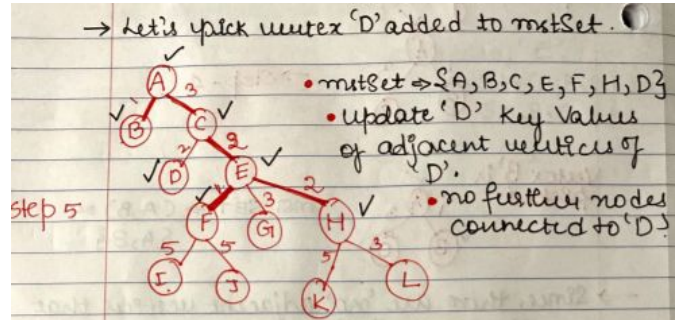 → Let's pick vertex 'D' added to mstSet.
• mstSet ⇒ {A, B, C, E, F, H, D}
• update 'D' key values
of adjacent vertices of
'D'.
• no further nodes
connected to 'D'.
step 5
A
1 3
B C
2 2
D E
3 2
F G H
5 5 5 3
I J K L